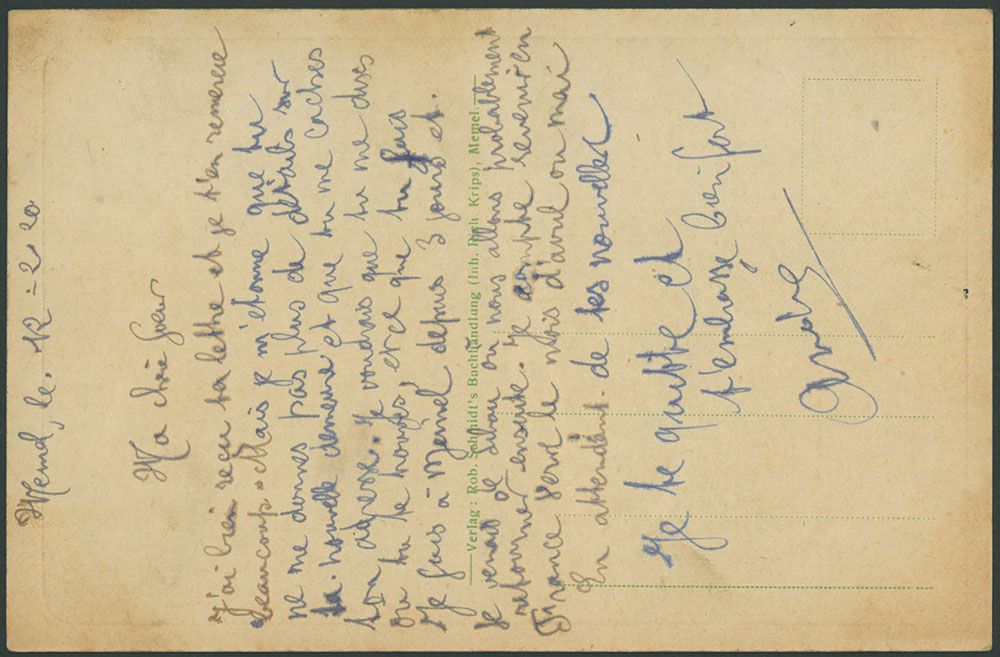 Memel, le. 12-2-20
Ma chère Soeur
J'ai bien reçu ta lettre et je t'en remercie
beaucoup. Mais je m'étonne que tu
ne me donnes pas plus de détails sur
ta nouvelle demeure et que tu me caches
ton adresse. Je voudrais que tu me dises
ou tu te trouves, et ce que tu fais
Je suis à Memel depuis 3 jours et.
Je venais de ou nous allons probablement
retourner ensuite. Je compte revenir en
France vers le mois d'avril ou mai
En attendant de tes nouvelles
Je te quitte et
t'embrasse bien fort
André
Verlag: Rob. Schmidt's Buchhandlung (Inh. Rich Krips), Memel